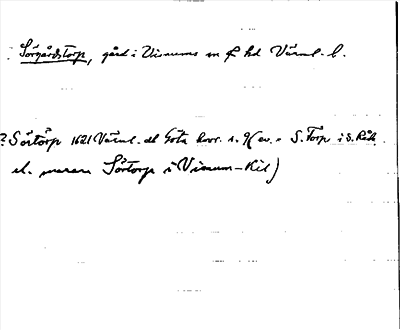 Sörgårdstorp, gård i Visnums sn o hd Värml. l.
? Sörtorp 1621 Värml. el Göta horr. s. 9 (ev. = S. Torp i S. Råd.
el. snarare Sörtorp i Visnum-Kil)